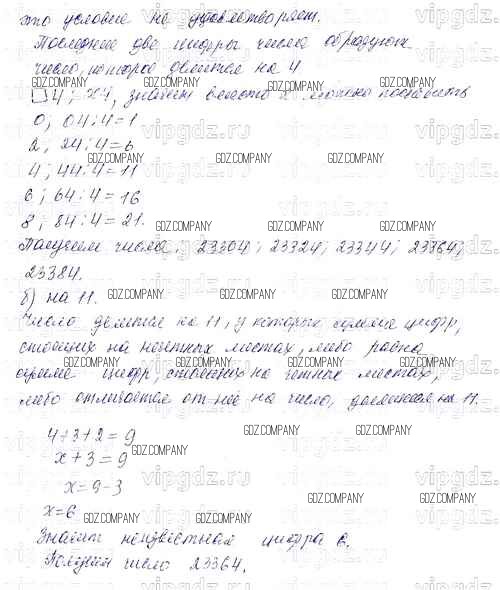 это условие не удовлетворяет.
Последние две цифры числа образуют
число, которое делится на 4
□4; x4, значит вместо x можно поставить
0; 04:4=1
2; 24:4=6
4; 44:4=11
6; 64:4=16
8; 84:4=21.
Получим числа: 23304; 23324; 23344; 23364;
23384.
б) на 11.
Число делится на 11, у которых сумма цифр,
стоящих на нечётных местах, либо равна
сумме цифр, стоящих на чётных местах,
либо отличается от неё на число, делящееся на 11.
4+3+2=9
x+3=9
x=9-3
x=6
Значит неизвестная цифра 6.
Получим число 23364.